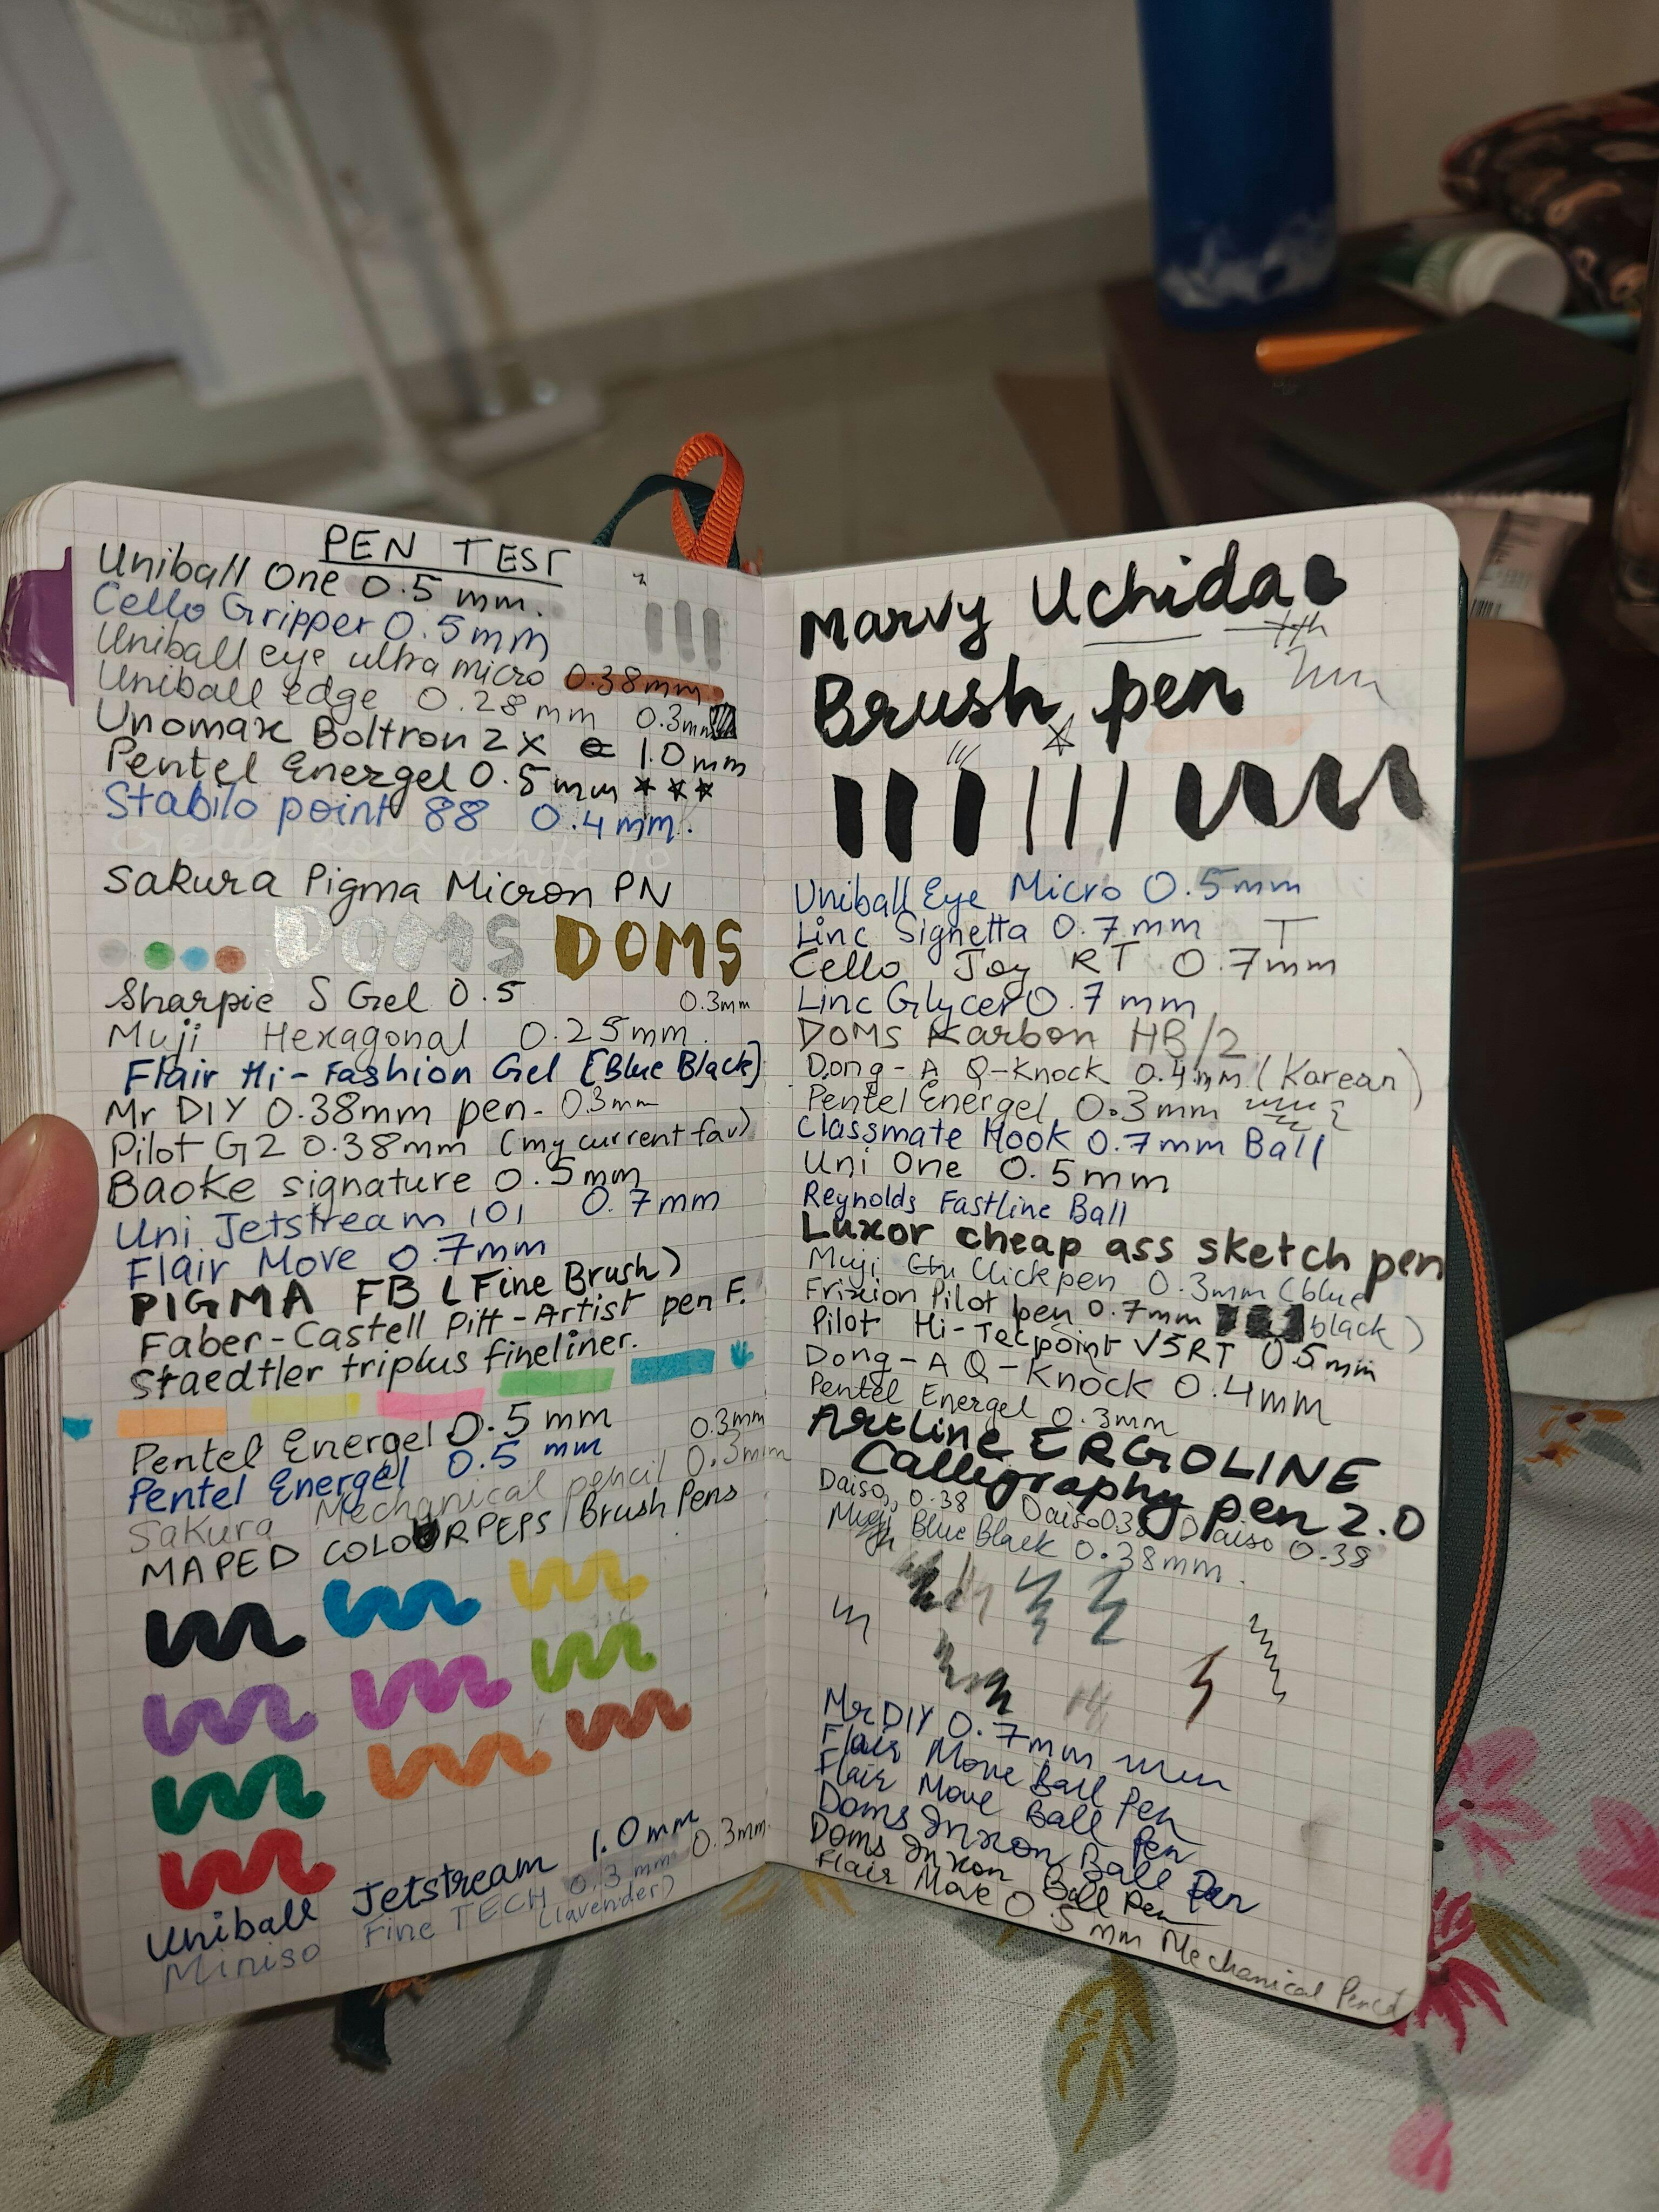 PEN TEST
Uniball One 0.5 mm.
Cello Gripper 0.5mm
Uniball eye ultra micro 0.38mm
Uniball edge 0.28mm 0.3mm
Unomax Boltron 2x 1.0mm
Pentel Energel 0.5mm
Stabilo point 88 0.4mm.
Gelly Roll white 10
Sakura Pigma Micron PN
DOMS DOMS
Sharpie S Gel 0.5 0.3mm
Muji Hexagonal 0.25mm
Flair Hi-Fashion Gel [Blue Black]
Mr DIY 0.38mm pen- 0.3mm
Pilot G2 0.38mm (my current fav)
Baoke signature 0.5mm
Uni Jetstream 101 0.7mm
Flair Move 0.7mm
PIGMA FB (Fine Brush)
Faber-Castell Pitt-Artist pen F.
Staedtler triplus fineliner.
Pentel Energel 0.5mm 0.3mm
Pentel Energel 0.5 mm
Sakura Mechanical pencil 0.3mm
MAPED COLOUR PEPS Brush Pens
Uniball Jetstream 1.0mm
Miniso Fine TECH 0.3mm 0.3mm
(lavender)
Marvy Uchida
Brush pen
Uniball Eye Micro 0.5mm
Linc Signetta 0.7mm T
Cello Joy RT 0.7mm
Linc Glycer 0.7mm
DOMS Karbon HB/2
Dong-A Q-Knock 0.4mm (Korean)
Pentel Energel 0.3mm
Classmate Hook 0.7mm Ball
Uni One 0.5mm
Reynolds Fastline Ball
Luxor cheap ass sketch pen
Muji Click pen 0.3mm (blue
Frixion Pilot pen 0.7mm black)
Pilot Hi-Tecpoint V5RT 0.5mm
Dong-A Q-Knock 0.4mm
Pentel Energel 0.3mm
Artline ERGOLINE
Calligraphy pen 2.0
Daiso 0.38 Daiso 0.38 Daiso 0.38
Muji Blue Black 0.38mm.
Mr DIY 0.7mm
Flair Move Ball Pen
Flair Move Ball Pen
Doms Inxon Ball Pen
Doms Inxon Ball Pen
Flair Move 0.5mm Mechanical Pencil